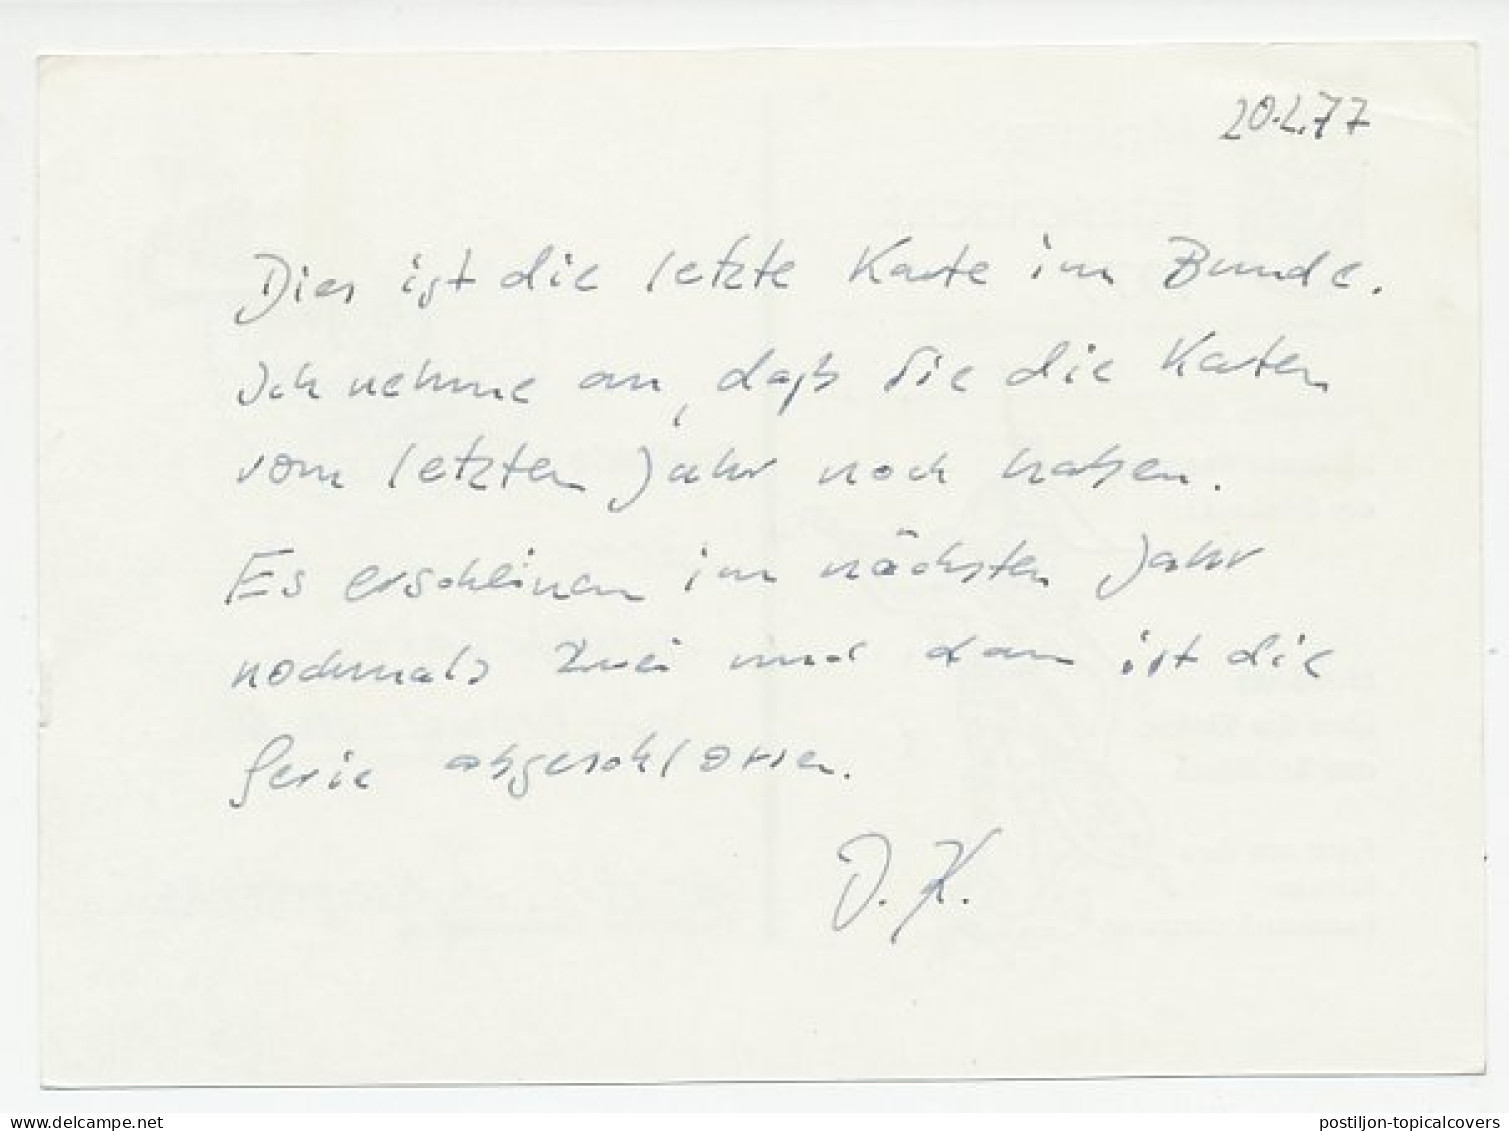 20.2.77
Dies ist die letzte Karte im Bunde.
Ich nehme an, daß Sie die Karten
vom letzten Jahr noch haben.
Es erscheinen im nächsten Jahr
nochmals zwei und dann ist die
Serie abgeschlossen.
J.K.
delcampe.net
postiljon-topicalcovers